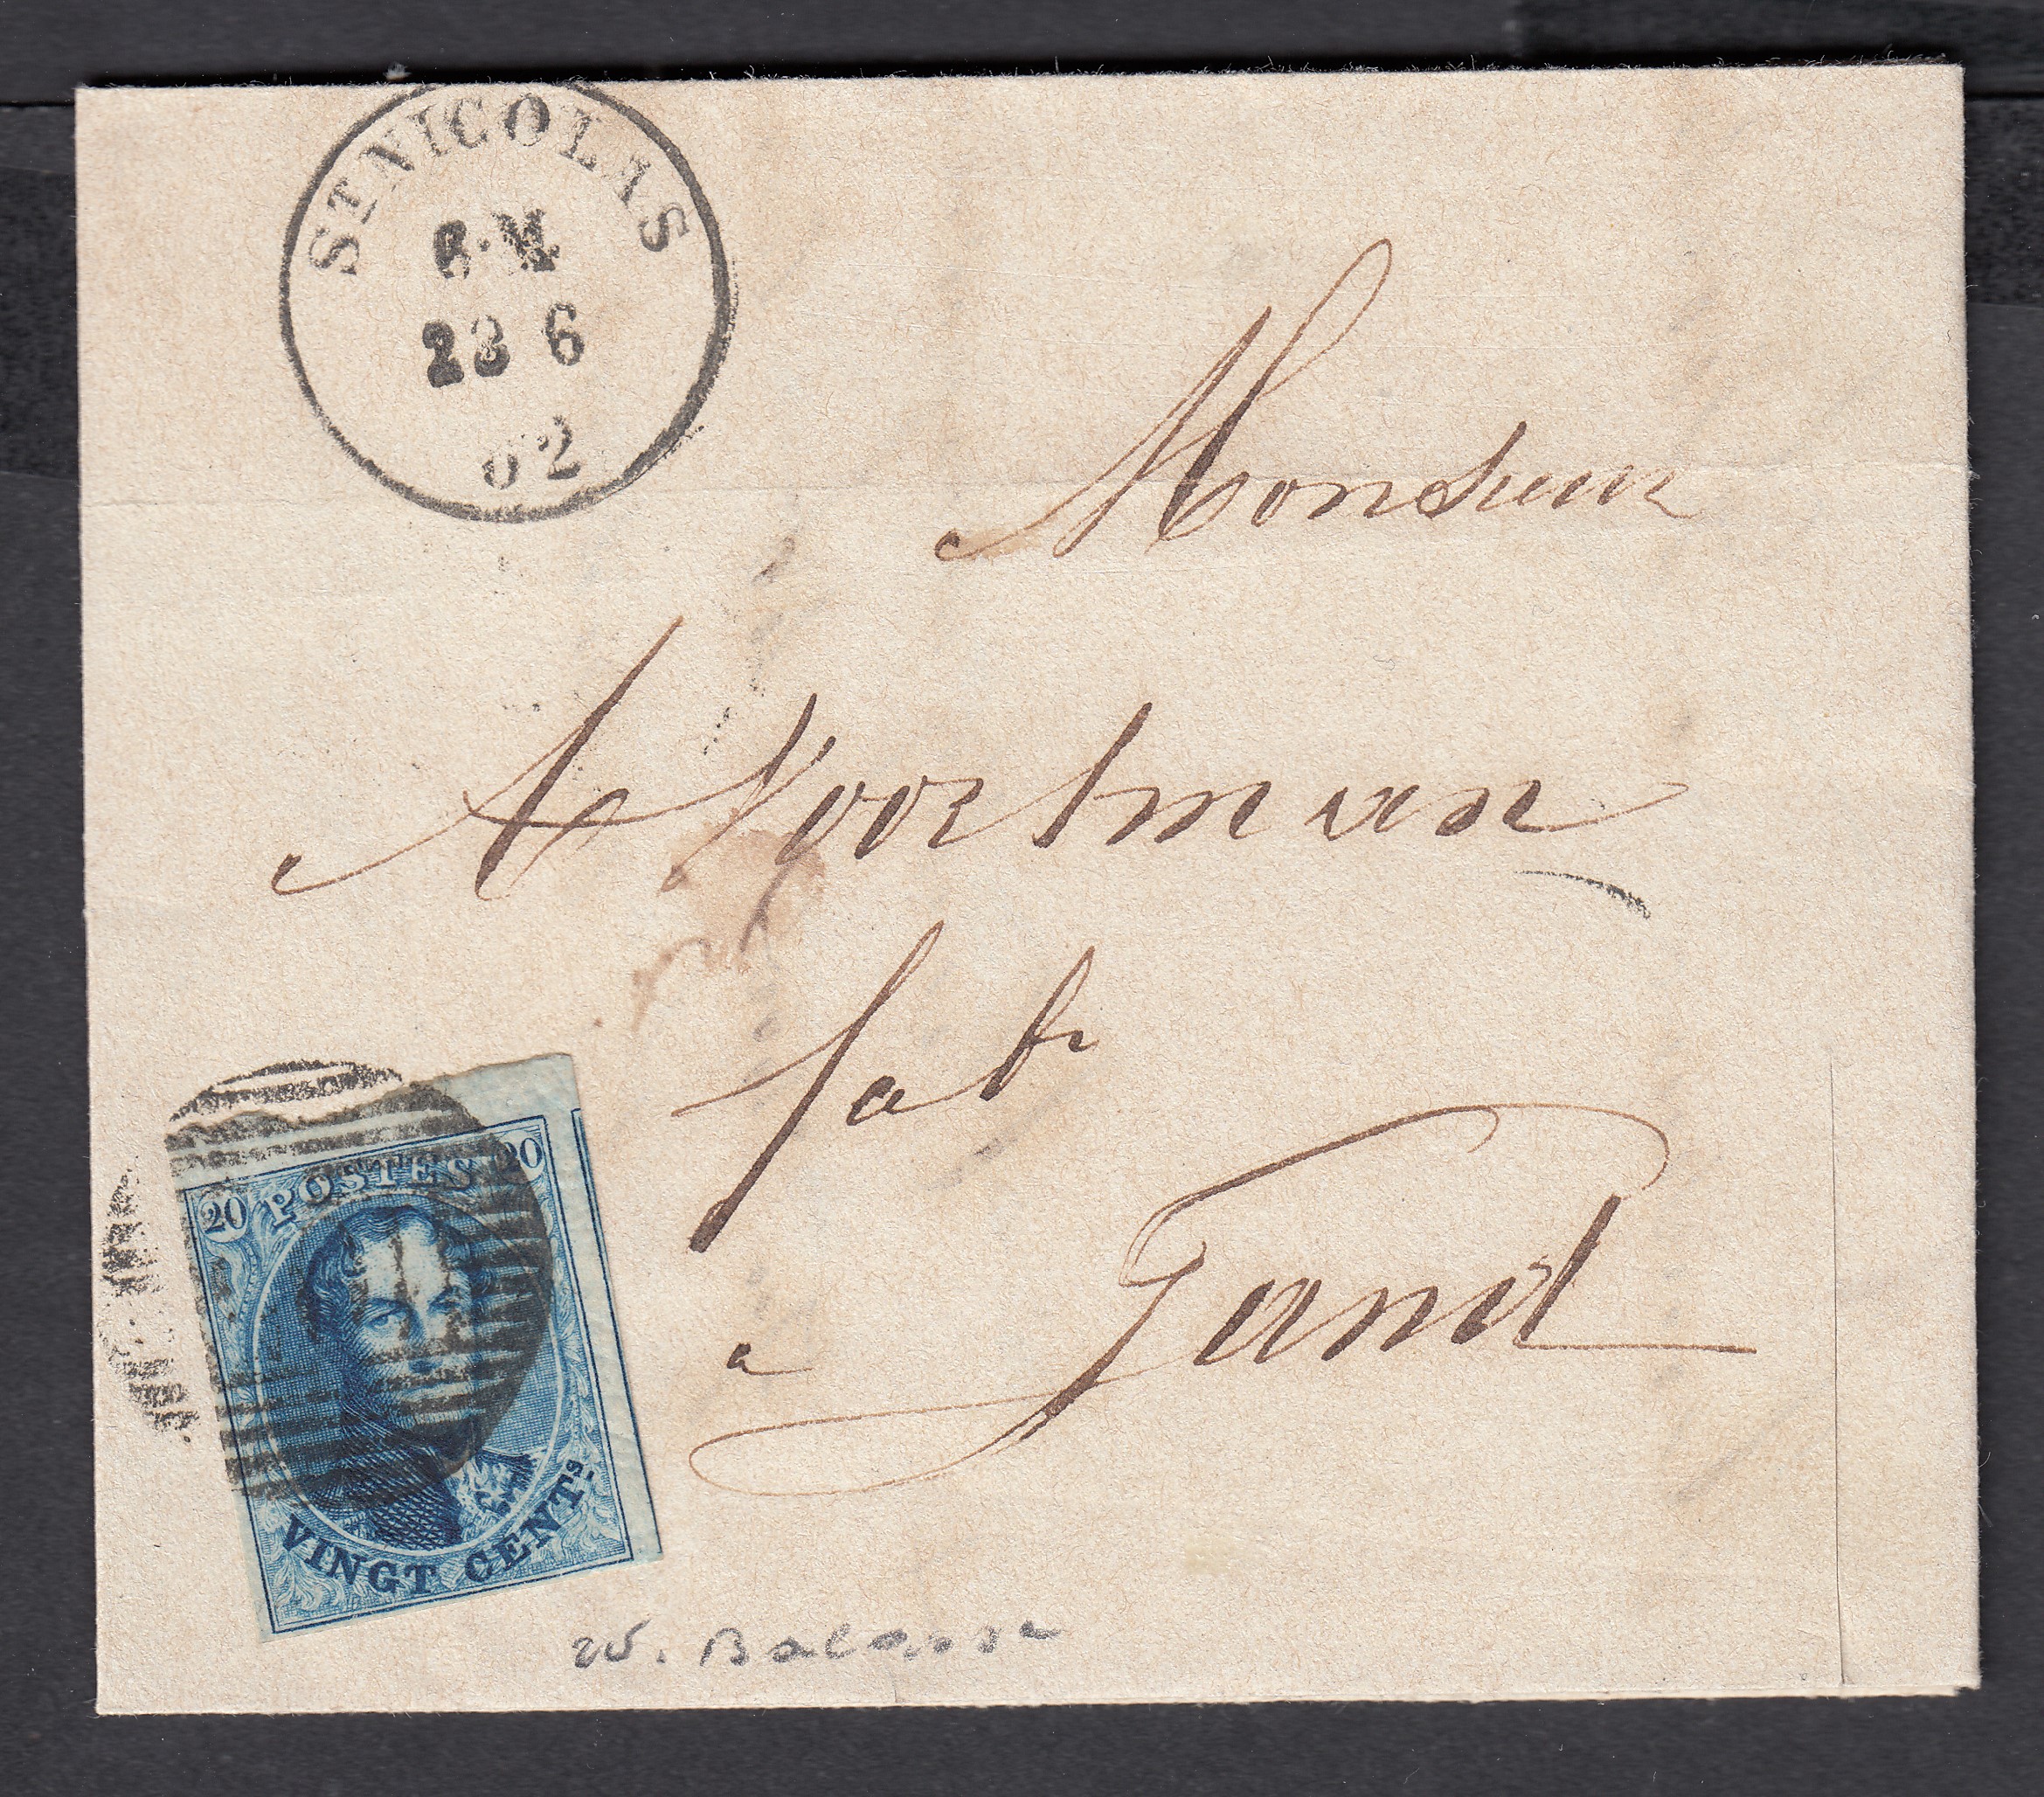 ST NICOLAS
6·M.
23 6
62
Monsieur
A Voortman
fabt
a Gand
20 POSTES 20
VINGT CENTS
W. Balasse